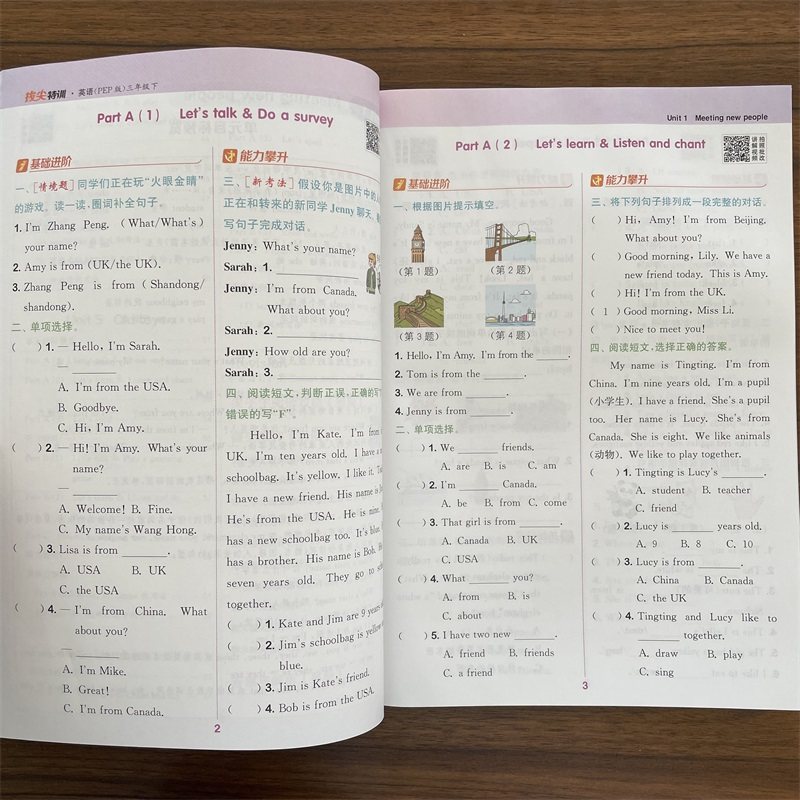 拔尖特训·英语(PEP版)三年级下
Part A (1) Let's talk & Do a survey
基础进阶
一、[情境题]同学们正在玩“火眼金睛”
的游戏。读一读,圈词补全句子。
1. I'm Zhang Peng. (What/What's)
your name?
2. Amy is from (UK/the UK).
3. Zhang Peng is from (Shandong/
shandong).
二、单项选择。
( ) 1. — Hello, I'm Sarah.
— ________
A. I'm from the USA.
B. Goodbye.
C. Hi, I'm Amy.
( ) 2. — Hi! I'm Amy. What's your
name?
— ________
A. Welcome! B. Fine.
C. My name's Wang Hong.
( ) 3. Lisa is from ________.
A. USA B. UK
C. the USA
( ) 4. — I'm from China. What
about you?
— ________
A. I'm Mike.
B. Great!
C. I'm from Canada.
能力攀升
三、[新考法]假设你是图片中的
正在和转来的新同学 Jenny 聊天,
写句子完成对话。
Jenny: What's your name?
Sarah: 1. ________
Jenny: I'm from Canada.
What about you?
Sarah: 2. ________
Jenny: How old are you?
Sarah: 3. ________
四、阅读短文,判断正误,正确的写“
错误的写“F”。
Hello, I'm Kate. I'm from
UK. I'm ten years old. I have a
schoolbag. It's yellow. I like it.
I have a new friend. His name is
He's from the USA. He is nine.
has a new schoolbag too. It's blue.
has a brother. His name is Bob. He
seven years old. They go to
together.
( ) 1. Kate and Jim are 9 years
( ) 2. Jim's schoolbag is yellow
blue.
( ) 3. Jim is Kate's friend.
( ) 4. Bob is from the USA.
2
Unit 1 Meeting new people
Part A (2) Let's learn & Listen and chant
拍照批改
讲解视频
基础进阶
一、根据图片提示填空。
(第1题) (第2题)
(第3题) (第4题)
1. Hello, I'm Amy. I'm from the ________.
2. Tom is from the ________.
3. We are from ________.
4. Jenny is from ________.
二、单项选择。
( ) 1. We ________ friends.
A. are B. is C. am
( ) 2. I'm ________ Canada.
A. be B. from C. come
( ) 3. That girl is from ________.
A. Canada B. UK
C. USA
( ) 4. What ________ you?
A. from B. is
C. about
( ) 5. I have two new ________.
A. friend B. friends
C. a friend
能力攀升
三、将下列句子排列成一段完整的对话。
( ) Hi, Amy! I'm from Beijing.
What about you?
( ) Good morning, Lily. We have a
new friend today. This is Amy.
( ) Hi! I'm from the UK.
( 1 ) Good morning, Miss Li.
( ) Nice to meet you!
四、阅读短文,选择正确的答案。
My name is Tingting. I'm from
China. I'm nine years old. I'm a pupil
(小学生). I have a friend. She's a pupil
too. Her name is Lucy. She's from
Canada. She is eight. We like animals
(动物). We like to play together.
( ) 1. Tingting is Lucy's ________.
A. student B. teacher
C. friend
( ) 2. Lucy is ________ years old.
A. 9 B. 8 C. 10
( ) 3. Lucy is from ________.
A. China B. Canada
C. the UK
( ) 4. Tingting and Lucy like to
________ together.
A. draw B. play
C. sing
3